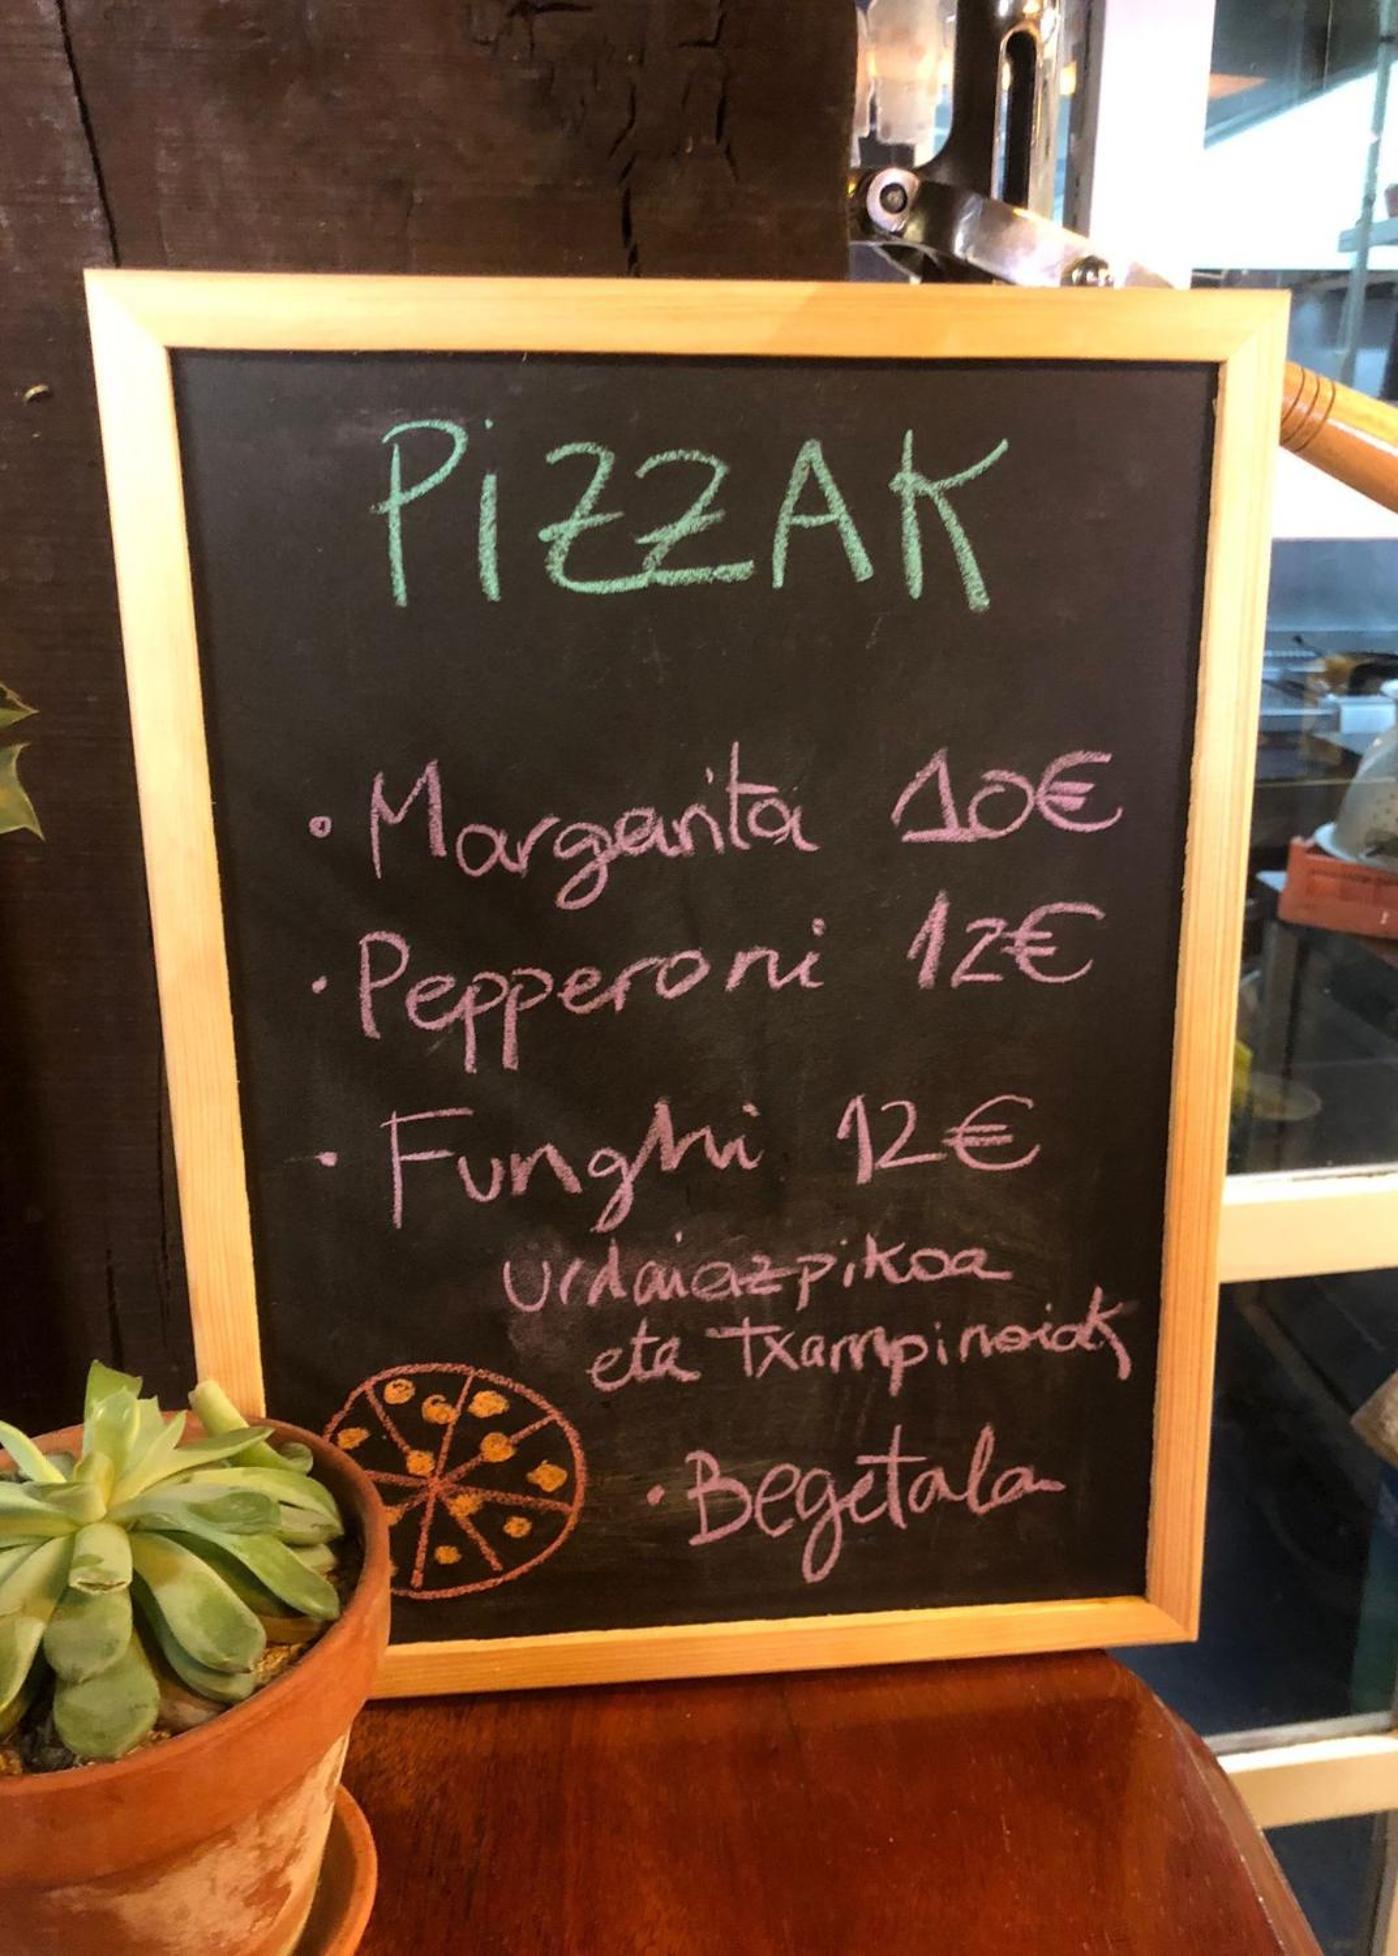 PiZZAK
· Margarita 10€
· Pepperoni 12€
· Funghi 12€
urdaiazpikoa
eta Txampinoiak
· Begetala